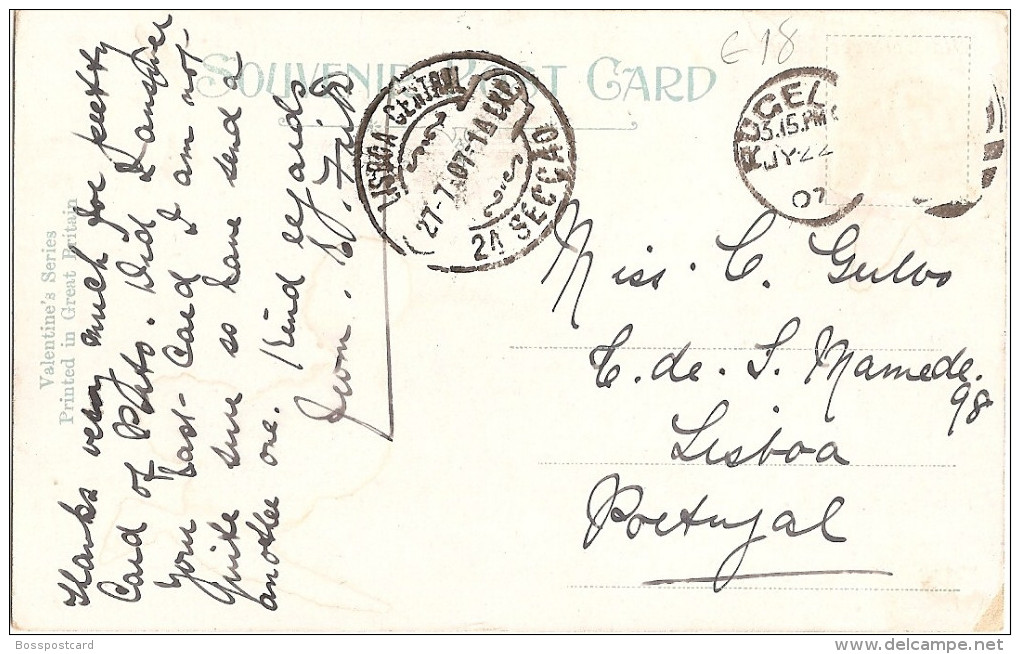 SOUVENIR POST CARD
€18
Valentine's Series
Printed in Great Britain
Thanks very much for pretty
Card of Porto. Did I answer
your last-Card I am not
quite sure so have send a
another one. Kind regards
from.
LISBOA CENTRAL
27-7 07-1A
2A SECCAO
RUGEL
3.15.PM
JY 22
07
Miss. C. Gulbo
C. de. S. Mamede.
98
Lisboa
Portugal
Bosspostcard
www.delcampe.net